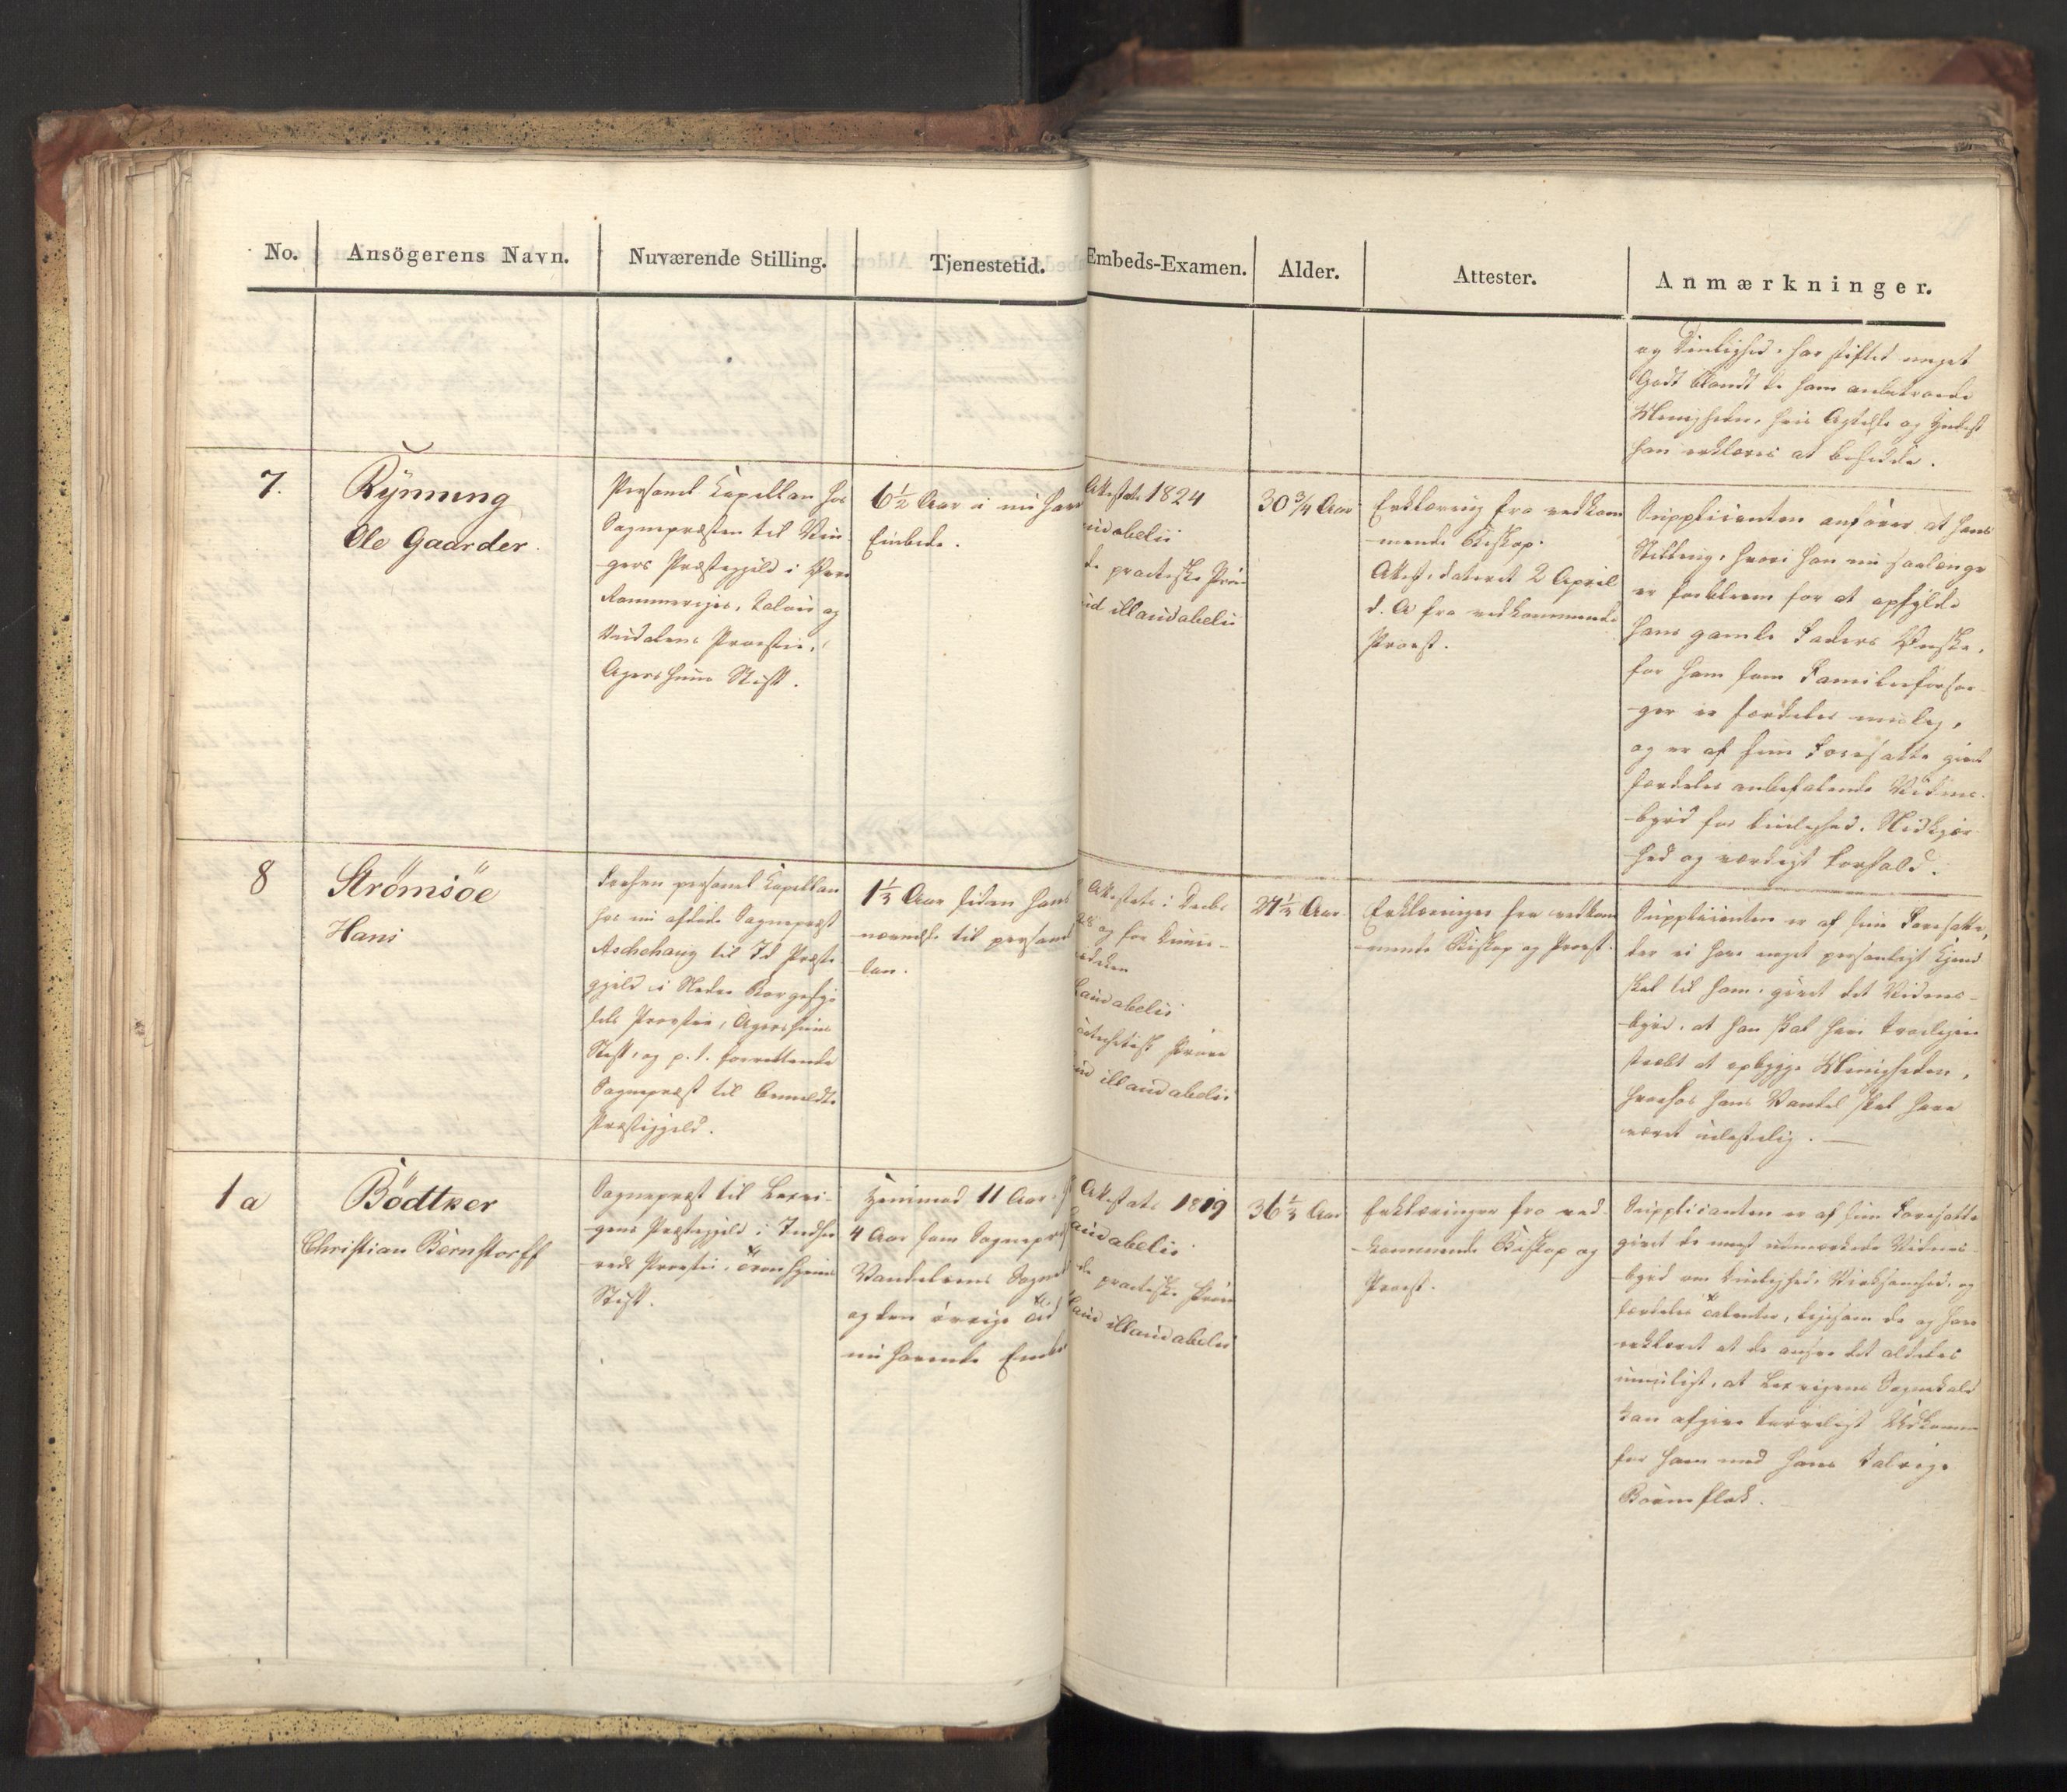 No.
Ansögerens Navn.
Nuværende Stilling.
Tjenestetid.
Embeds-Examen.
Alder.
Attester.
Anmærkninger.
og Duelighed, har stiftet meget
Godt blandt de ham anbetroede
Menigheder, hvis Agtelse og Yndest
han erklæres at besidde.
7.
Rynning
Ole Gaarder.
Personel Capellan hos
Sognepræsten til Vin-
gers Præstegjeld i Øvre
Rommeriges, Soløers og
Provstie,
Agershuus Stift.
6½ Aar i nu hav
Embede.
Attestats 1824
audabelis
de practiske Prøv
ud illaudabelis
30 3/4 Aar
Erklæring fra vedkom
mende Biskop.
Attest, dateret 2 April
d. A. fra vedkommende
Provst.
Supplicanten anfører at hans
Stilling, hvori han nu saalænge
er forbleven for at opfylde
hans gamle Faders Ønske,
for ham som Familieforsør-
ger er særdeles
og er af sine Foresatte givet
særdeles anbefalende Vidnes-
byrd for Duelighed, Nidkjær-
hed og værdigt Forhold.
8
Strömsöe
Hans
Forhen personel Capellan
hos nu afdøde Sognepræst
Aschehoug til Id Præste
gjeld i Nedre Borgesys
sels Provstie, Agershuus
Stift, og p. t. forrettende
Sognepræst til bemeldte
Præstegjeld.
1⅓ Aar siden hans
nævnelse til personel
lan.
Attestats i Decbr
og for
laudabelis
catechetisk Prøve
ud illaudabelis
27½ Aar.
Erklæringer fra vedkom
mende Biskop og Provst.
Supplicanten er af sine Foresatte,
der ei have noget personligt Kjend
skab til ham, givet det Vidnes-
byrd, at han skal have
stræbt at opbygge Menigheden,
hvorhos hans Vandel skal have
været ulastelig.
1a
Bödtker
Christian Bernstorff
Sognepræst til Lexvi-
gens Præstegjeld i Indher
reds Provstie, Tronhjems
Stift.
Henimod 11 Aar,
4 Aar som Sognepræst
Sogne
og den øvrige Tid
nu havende Embe
Attestats 1819
audabelis
de practiske Prøve
laud illaudabelis
36⅓ Aar
Erklæringer fra ved-
kommende Biskop og
Provst.
Supplicanten er af sine Foresatte
givet de mest udmærkede Vidnes-
byrd om Duelighed, Virksomhed og
særdeles Talenter, ligesom de og have
erklæret at de ansee det aldeles
umuligt, at Lexvigens Sognekald
kan afgive tarveligt Udkomme
for ham med hans talrige
Børneflok.